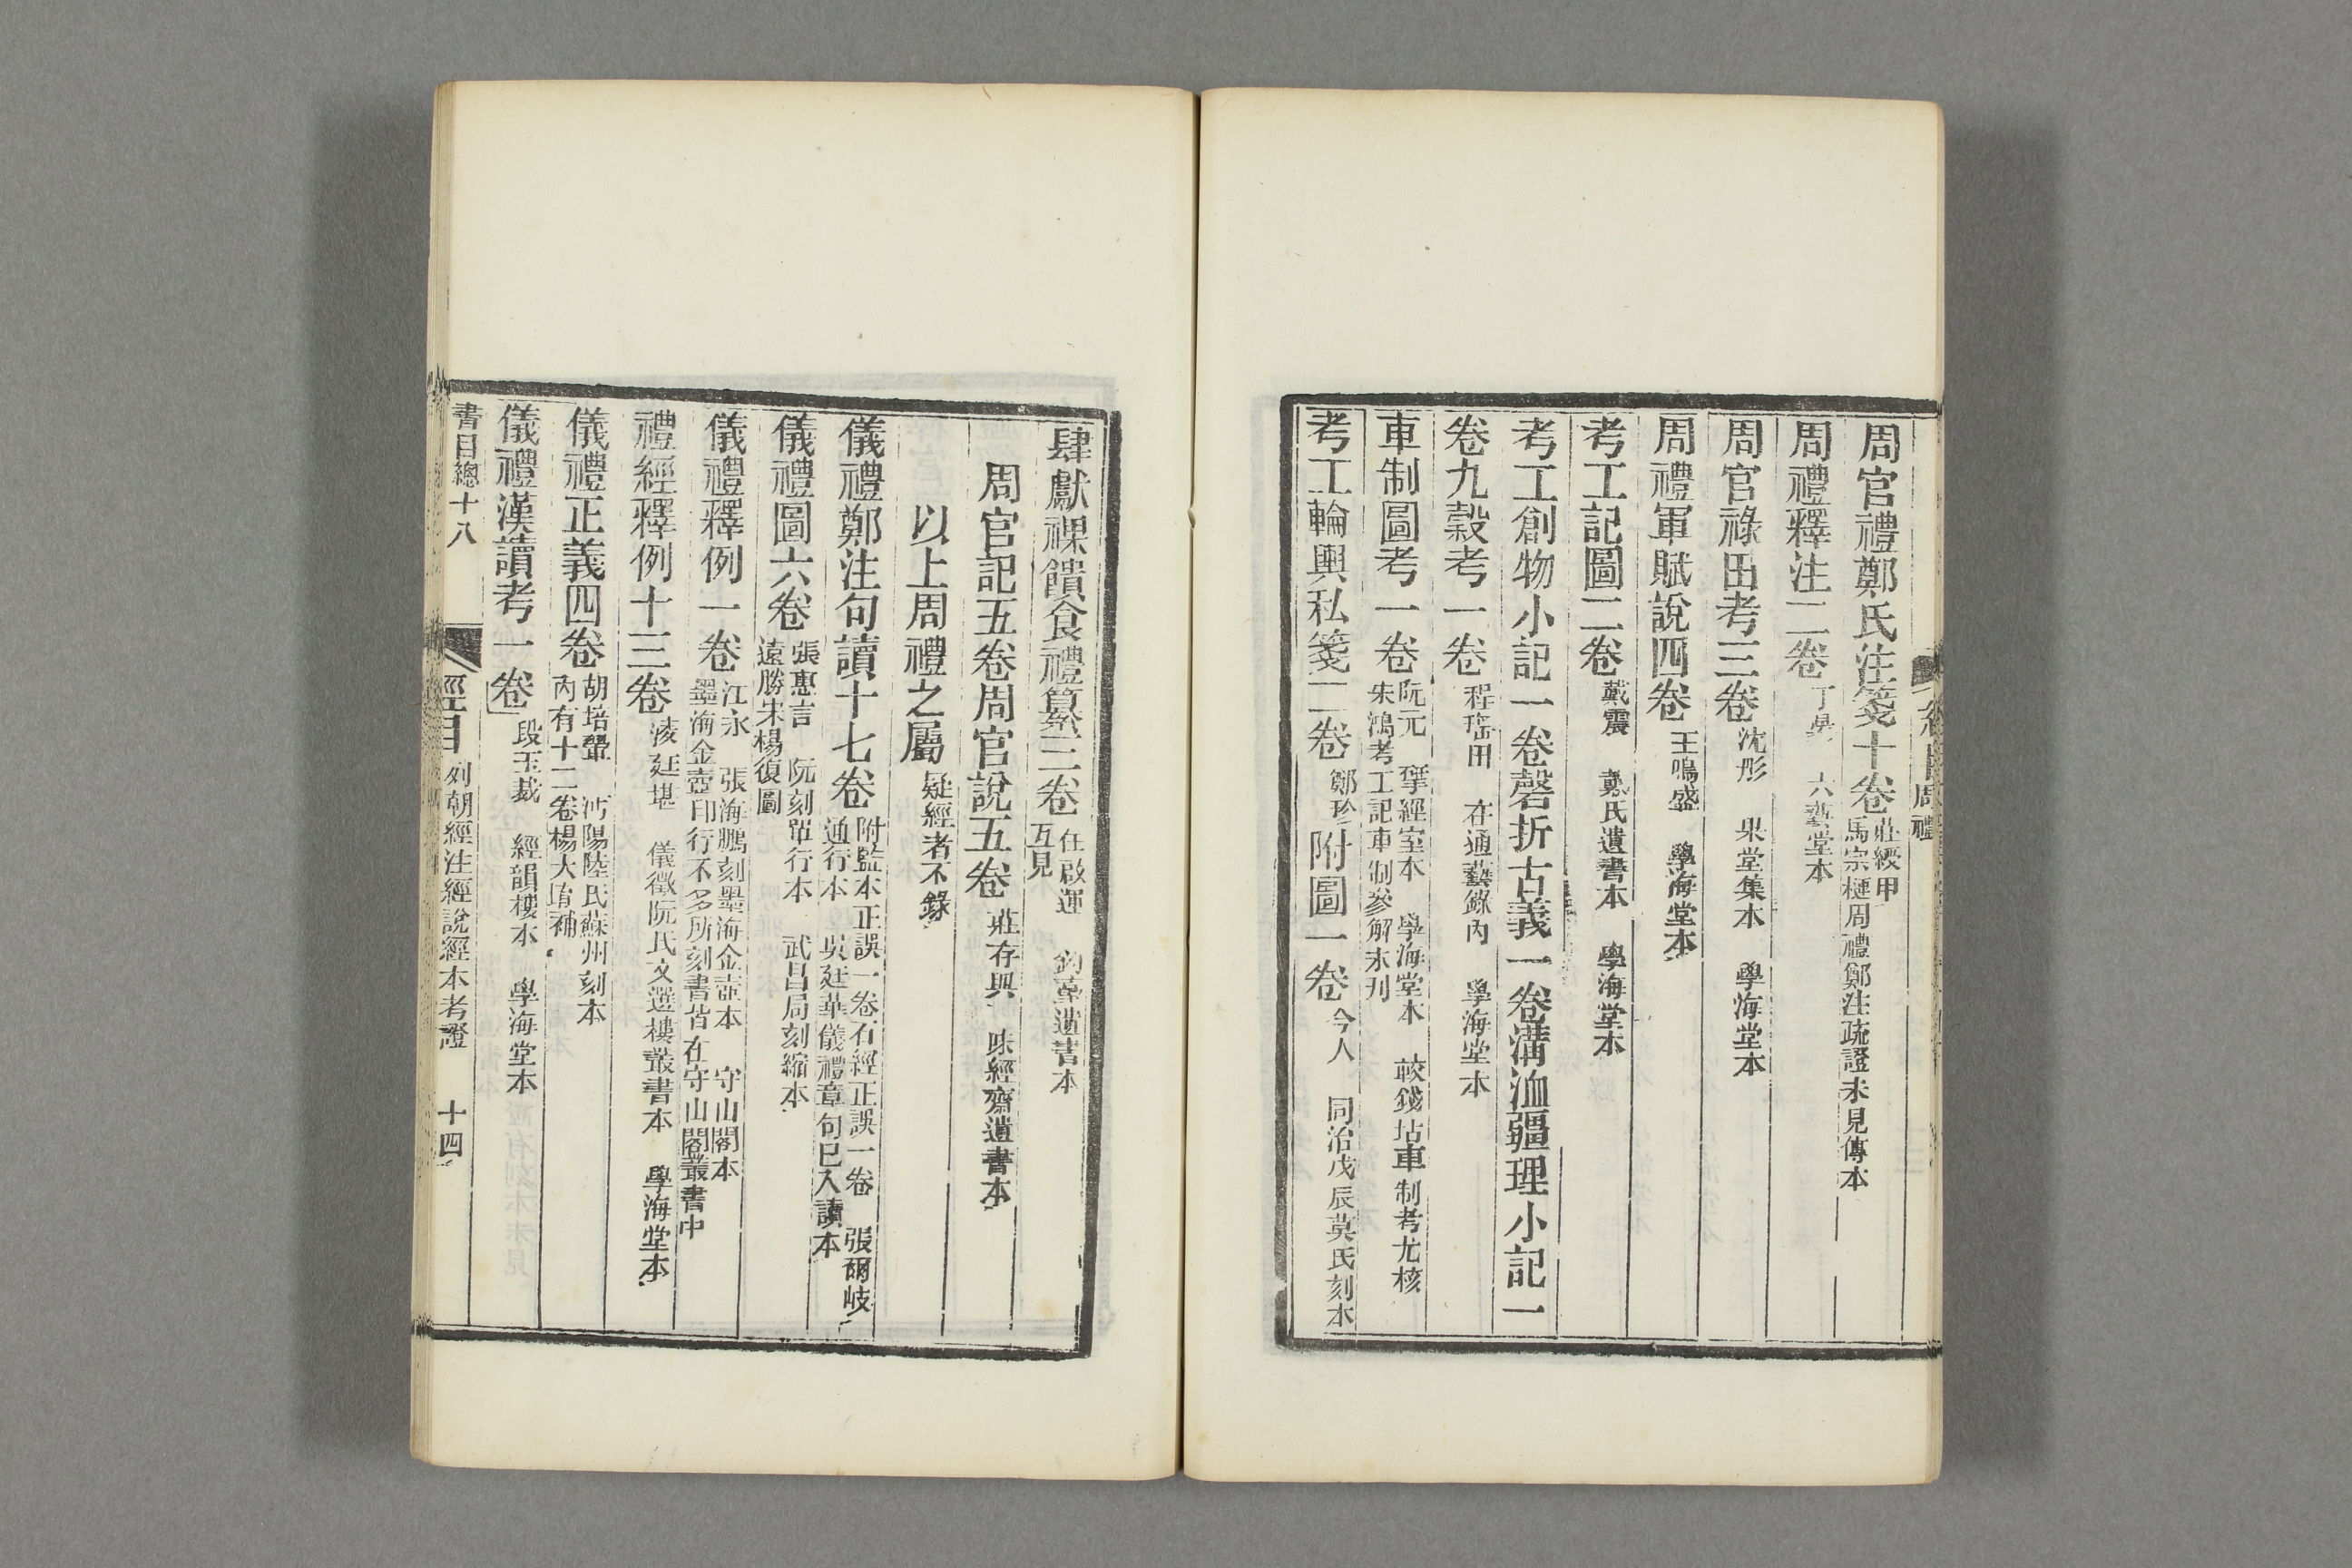 周禮
周官禮鄭氏注箋十卷 莊綬甲 馬宗槤周禮鄭注疏證未見傳本
周禮釋注二卷 丁晏 六藝堂本
周官祿田考三卷 沈彤 果堂集本 學海堂本
周禮軍賦說四卷 王鳴盛 學海堂本
考工記圖二卷 戴震 戴氏遺書本 學海堂本
考工創物小記一卷磬折古義一卷溝洫疆理小記一
卷九穀考一卷 程瑤田 在通藝錄內 學海堂本
車制圖考一卷 阮元 揅經室本 學海堂本 較錢坫車制考尤核 朱鴻考工記車制參解未刊
考工輪輿私箋二卷 鄭珍 附圖一卷 今人 同治戊辰莫氏刻本
肆獻祼饋食禮纂三卷 任啟運 釣臺遺書本 互見
周官記五卷周官說五卷 莊存與 味經齋遺書本
以上周禮之屬 疑經者不錄
儀禮鄭注句讀十七卷 附監本正誤一卷石經正誤一卷 張爾岐 通行本 吳廷華儀禮章句已入讀本
儀禮圖六卷 張惠言 阮刻單行本 武昌局刻縮本 遠勝宋楊復圖
儀禮釋例一卷 江永 張海鵬刻墨海金壺本 守山閣本 墨海金壺印行不多所刻書皆在守山閣叢書中
禮經釋例十三卷 淩廷堪 儀徵阮氏文選樓叢書本 學海堂本
儀禮正義四卷 胡培翬 沔陽陸氏蘇州刻本 內有十二卷楊大堉補
儀禮漢讀考一卷 段玉裁 經韻樓本 學海堂本
書目總十八 經目 列朝經注經說經本考證 十四